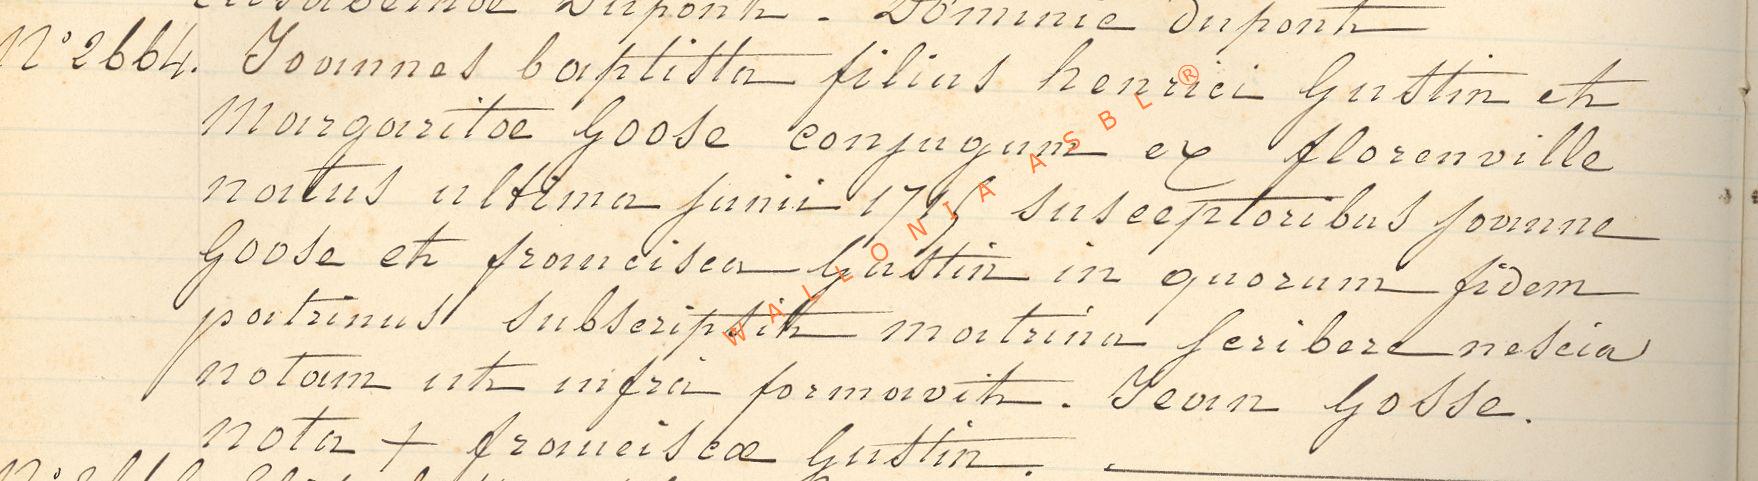 Dupont. Dominic Dupont
N° 2664. Joannes baptista filius henrici Gustin et
Margaritae Goose conjugum ex florenville
natus ultima junii susceptoribus joanne
Goose et francisca Gustin in quorum fidem
patrinus subscripsit matrina scribere nescia
notam ut infra formavit. Jean Gosse.
nota + franciscae Gustin.
WALLONIA ASBL ®